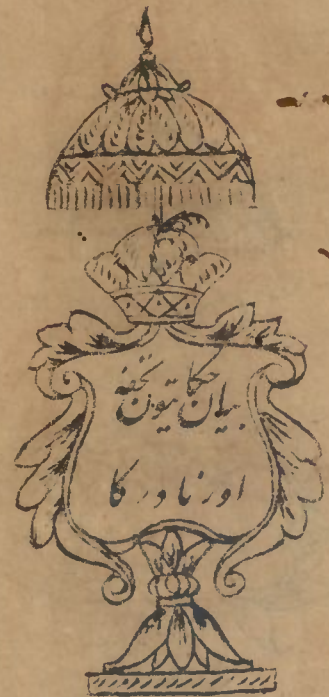 بیان حکایتون تحفه
اور نادر کا